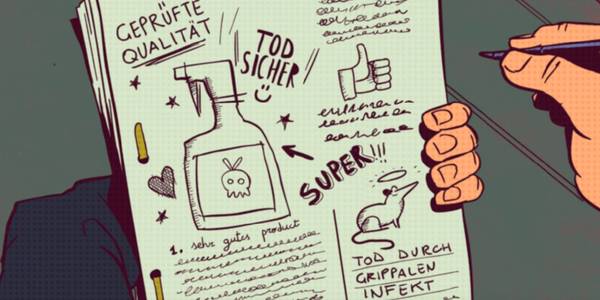 GEPRÜFTE
QUALITÄT
TOD
SICHER
SUPER!!!
1. sehr gutes product
TOD DURCH
GRIPPALEN
INFEKT